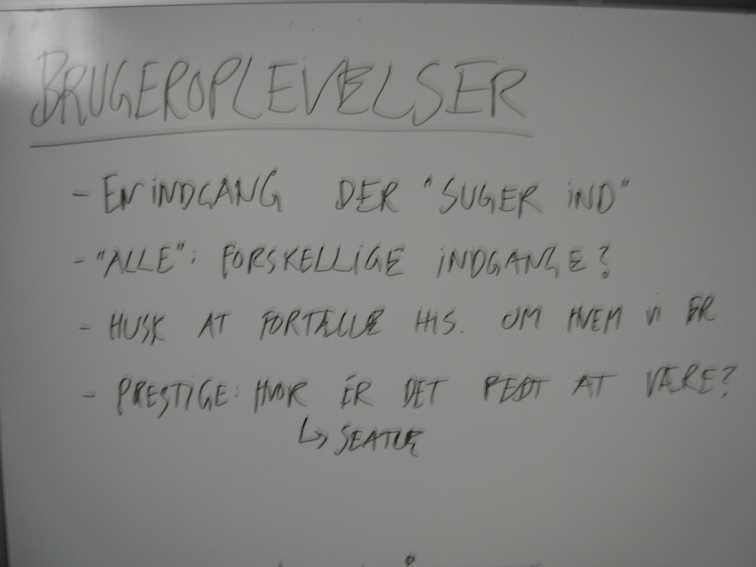 BRUGEROPLEVELSER
- EN INDGANG DER "SUGER IND"
- "ALLE": FORSKELLIGE INDGANGE?
- HUSK AT FORTÆLLE HIS. OM HVEM VI ER
- PRESTIGE: HVOR ER DET FEDT AT VÆRE?
↳ SEATTLE